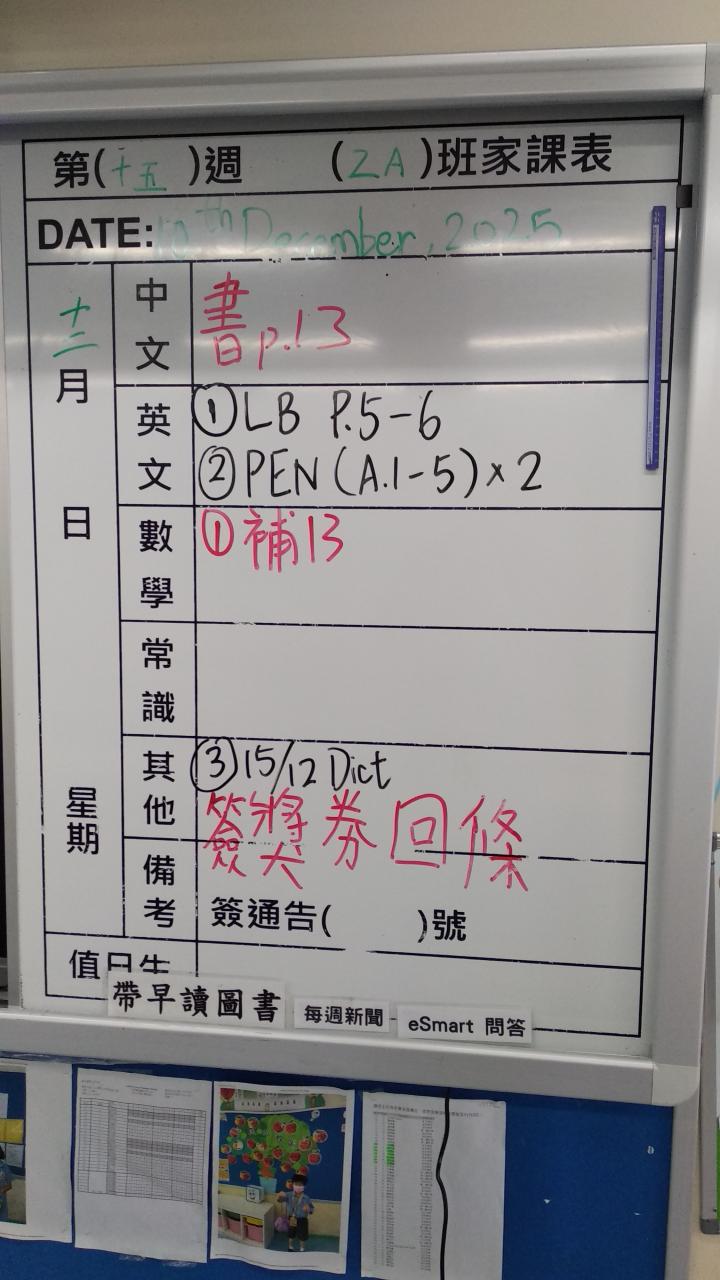 第(十五)週 (2A)班家課表
DATE: 10th December, 2025
十二月 日 星期
中文 書p.13
英文 ①LB P.5-6
②PEN (A.1-5)×2
數學 ①補13
常識
其他 ③15/12 Dict
簽獎券回條
備考 簽通告( )號
值日生
帶早讀圖書 每週新聞 eSmart 問答